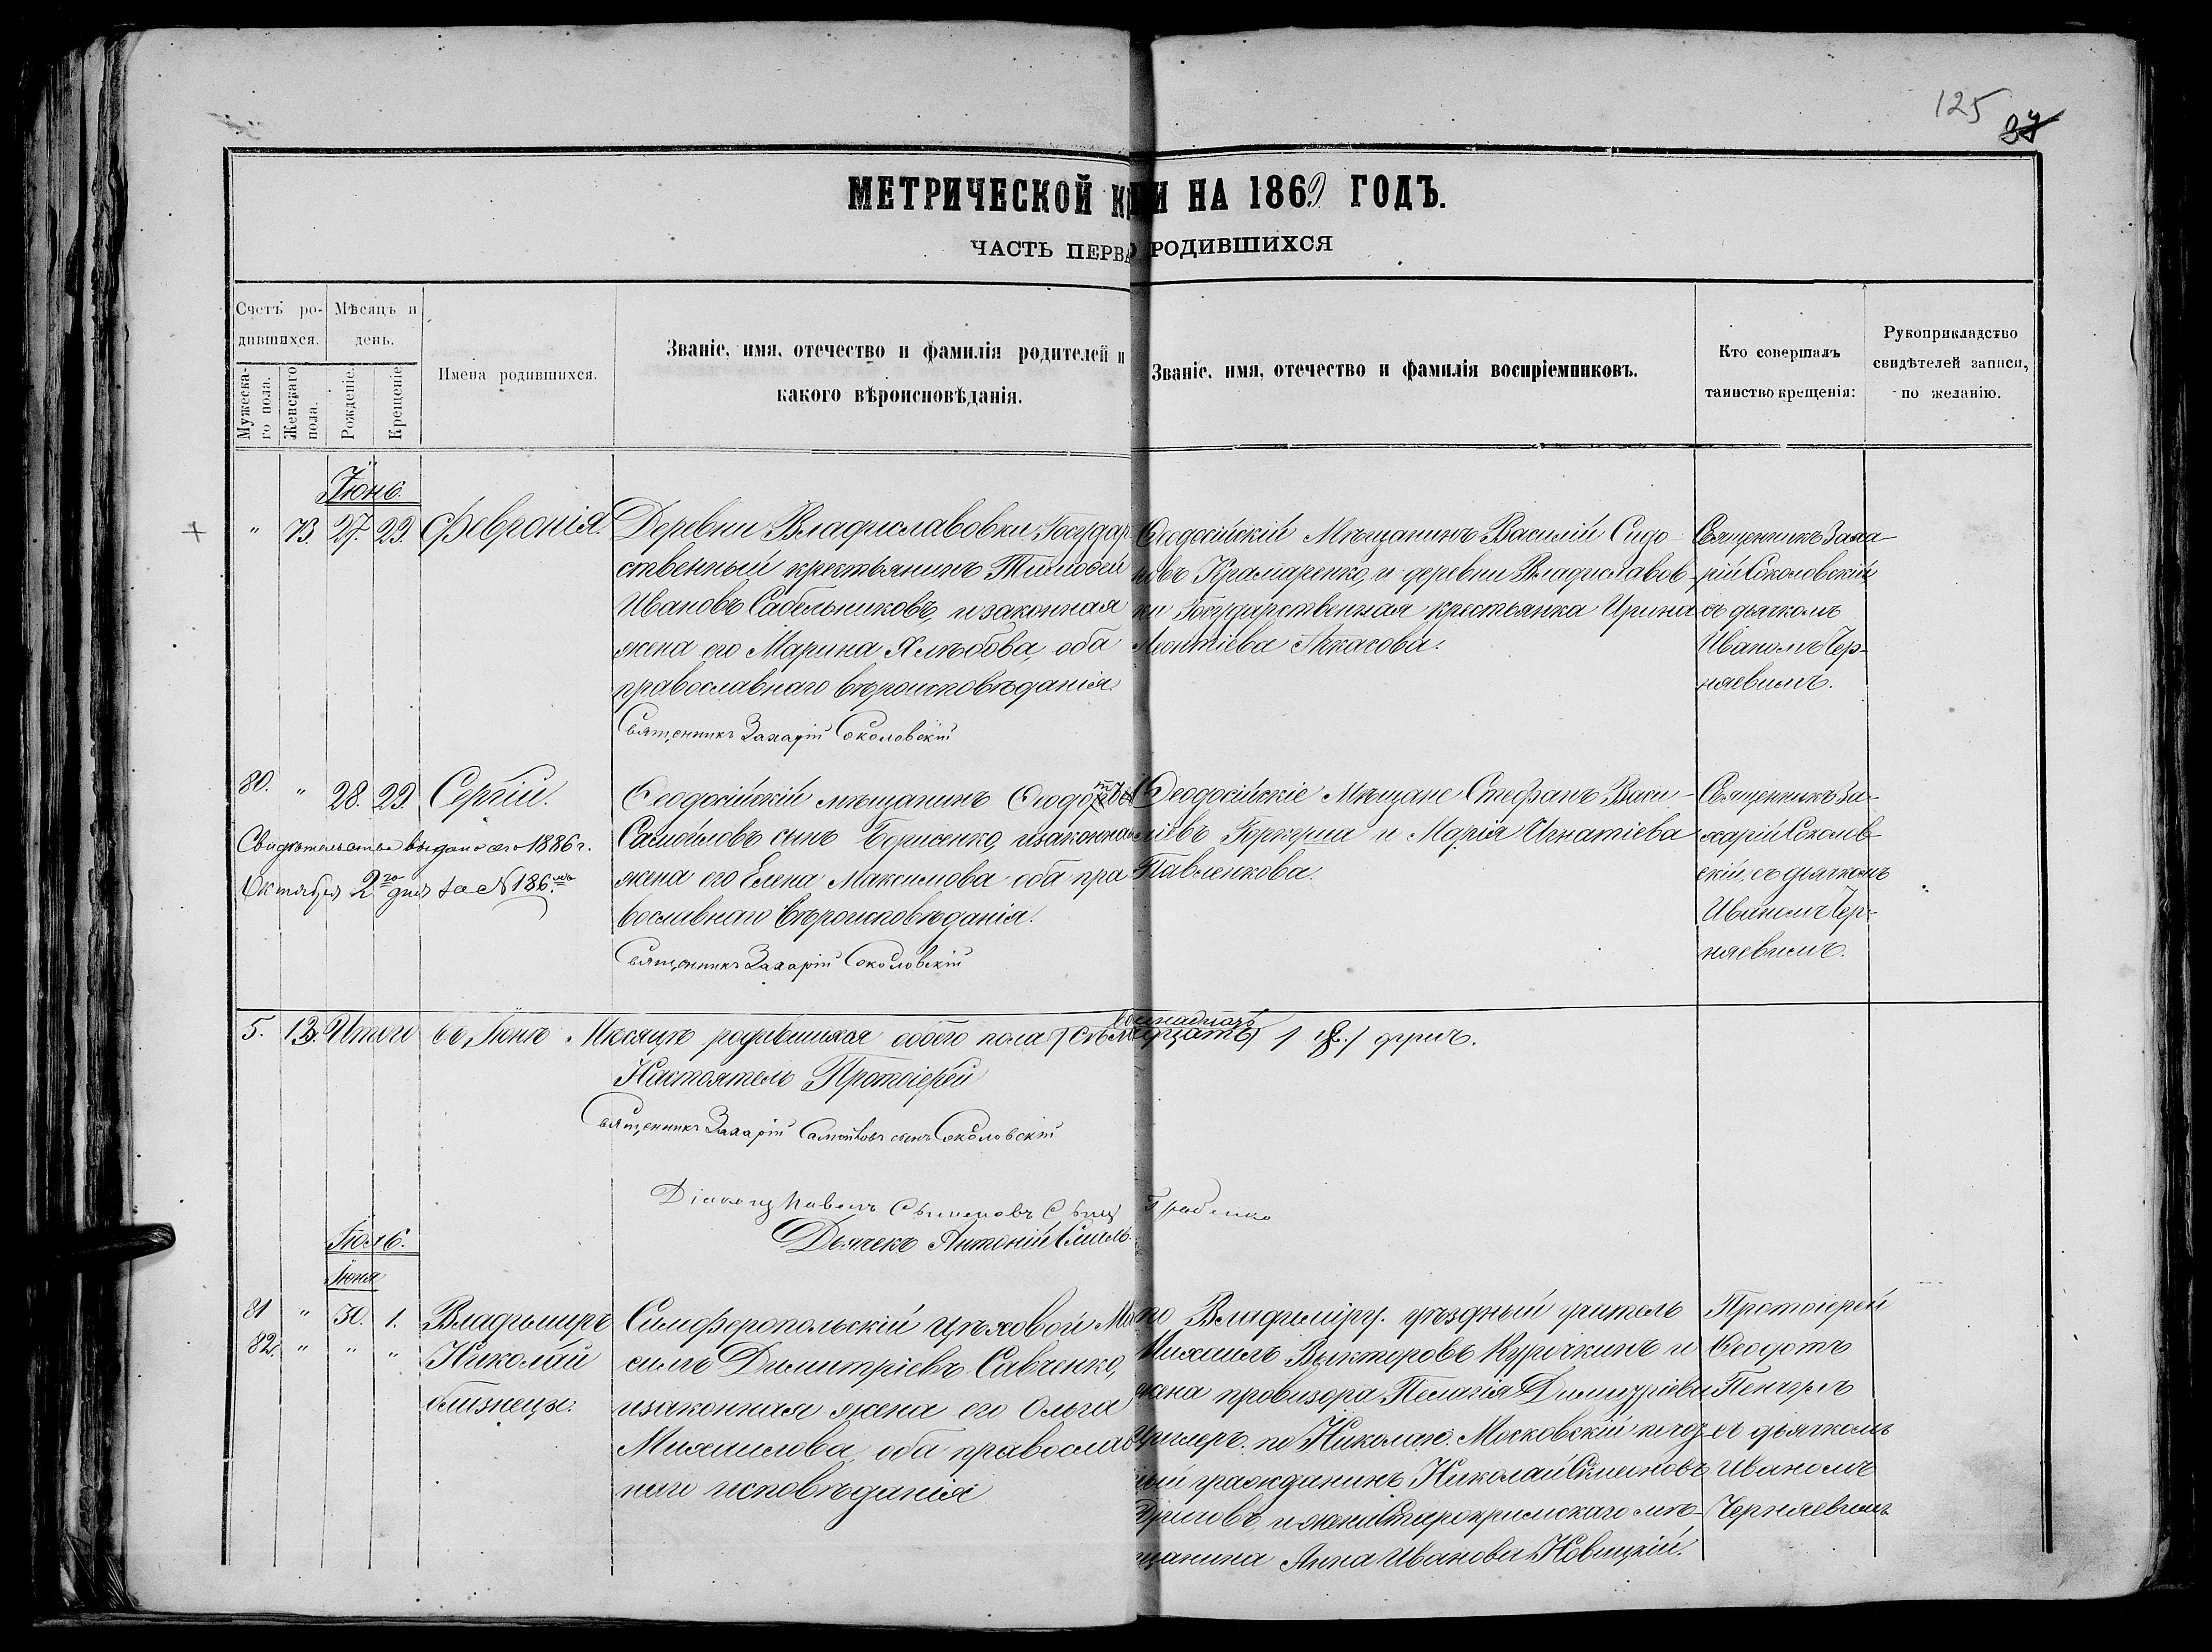 125
37
МЕТРИЧЕСКОЙ КН И НА 1869 ГОДЪ.
ЧАСТЬ ПЕРВА РОДИВШИХСЯ
Счетъ ро-
дившихся.
Мѣсяцъ и
день.
Мужеска-
го пола.
Женскаго
пола.
Рожденіе.
Крещеніе
Имена родившихся.
Званіе, имя, отечество и фамилія родителей и
какого вѣроисповѣданія.
Званіе, имя, отечество и фамилія воспріемниковъ.
Кто совершалъ
таинство крещенія:
Рукоприкладство
свидѣтелей записи,
по желанію.
Іюнь.
" 73. 27. 29. Февронія.
Деревни Владиславовки, Государ
ственный крестьянинъ Тимофей
Ивановъ Сабельниковъ, и законная
жена его Марина Глѣбова, оба
православнаго вѣроисповѣданія.
Священникъ Захарій Соколовскій
Ѳеодосійскій Мѣщанинъ Василій Сидо
ровъ Крамаренко, и деревни Владиславов
ки Государственная крестьянка Ирина
Леонтіева
Священникъ Заха
рій Соколовскій
съ дьячкомъ
Иваномъ Чер-
няевымъ.
80. " 28. 29. Сергій.
Свидѣтельство выдано 1886 г.
Октября 2го дня за № 186.
Ѳеодосійскій мѣщанинъ
Самойловъ сынъ Борисенко, и законная
жена его Елена Максимова оба пра
вославнаго вѣроисповѣданія.
Священникъ Захарій Соколовскій
Ѳеодосійскіе Мѣщане Стефанъ Васи-
ліевъ и Марія Игнатіева
Павленкова.
Священникъ За-
харій Соколов-
скій, съ дьячкомъ
Иваномъ Чер-
няевымъ.
5. 13. Итого въ Іюнѣ Мѣсяцѣ родившихся обоего пола душъ.
Настоятель Протоіерей
Священникъ Захарій Самойловъ сынъ Соколовскій
Діаконъ Павелъ Сѵмеоновъ сынъ
Дьячекъ Антоній
Іюль.
Іюня
81 " 30. 1. Владимиръ
82. " " " Николай
близнецы.
Симферопольскій цѣховой Мак
симъ Димитріевъ Савченко,
и законная жена его Ольга
Михаилова, оба православ
наго исповѣданія
по Владиміру. уѣздный учитель
Михаилъ Викторовъ Куричкинъ и
жена провизора Пелагія Димитріева
Циглеръ. по Николаю. Московскій почет
ный гражданинъ Николай Сѵмеоновъ
и жена Старокримскаго мѣ-
щанина Анна Иванова Новицкій.
Протоіерей
Ѳеодотъ
съ дьячкомъ
Иваномъ
Черняевымъ